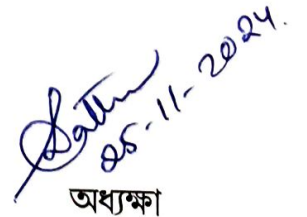 25-11-2024.
অধ্যক্ষা